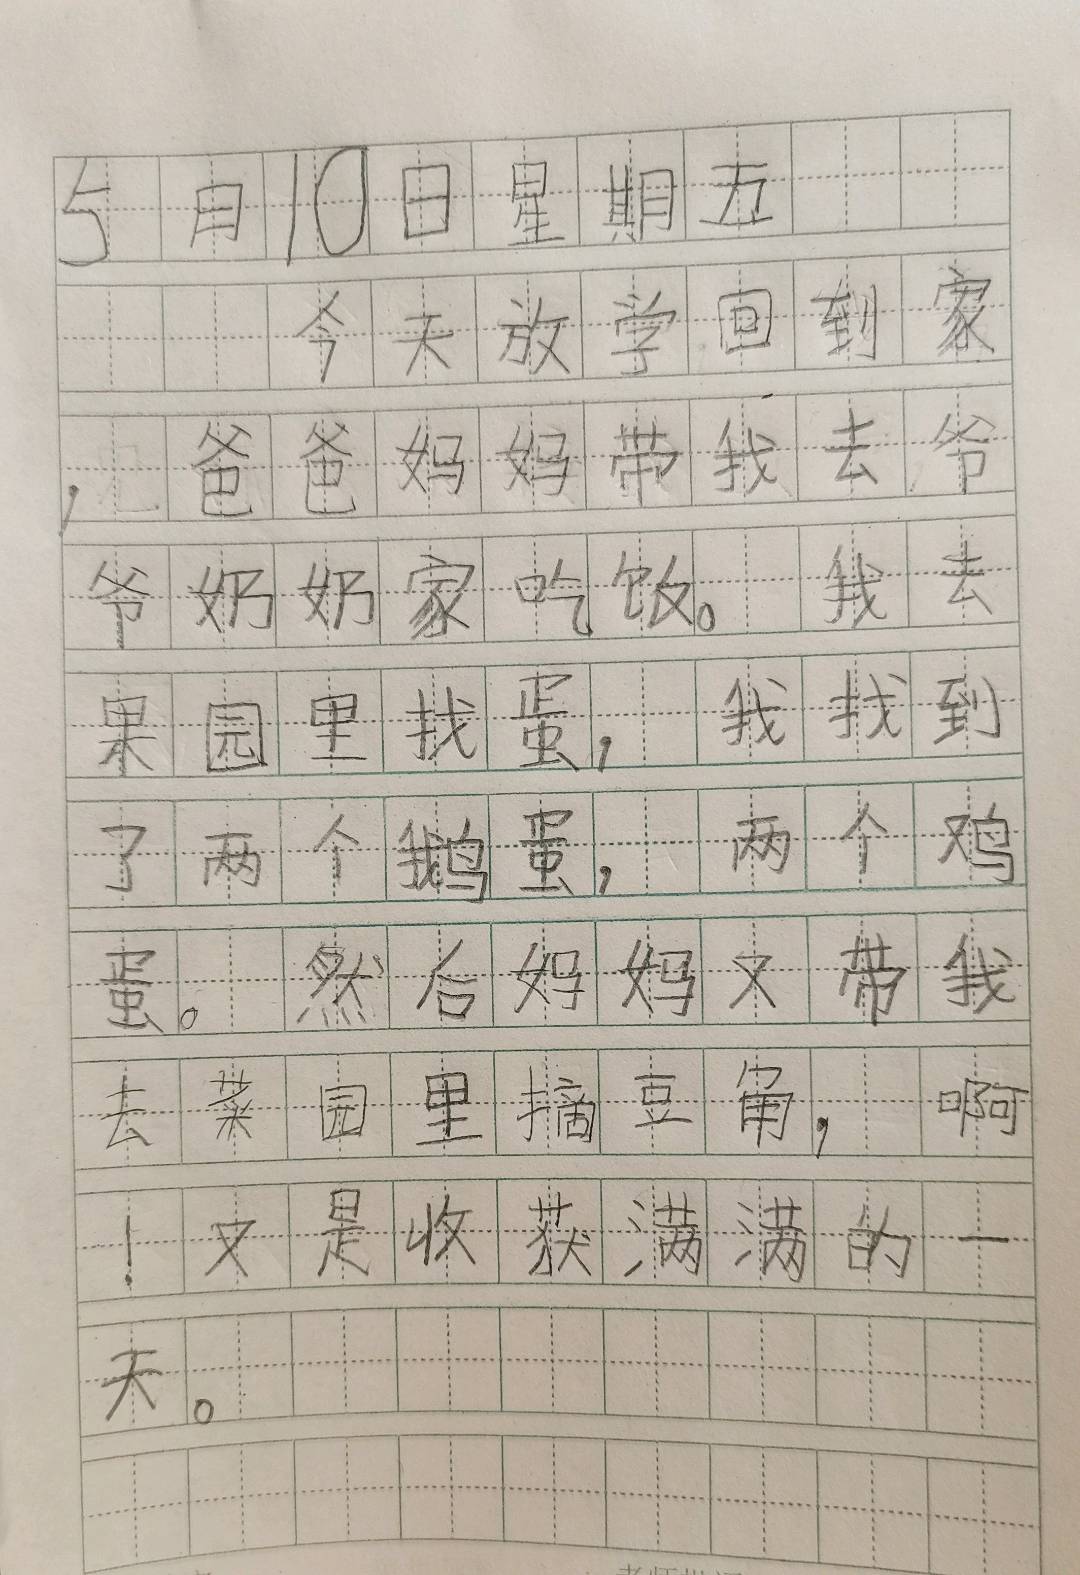 5月10日星期五
今天放学回到家
,爸爸妈妈带我去爷
爷奶奶家吃饭。我去
果园里找蛋,我找到
了两个鹅蛋,两个鸡
蛋。然后妈妈又带我
去菜园里摘豆角,啊
!又是收获满满的一
天。